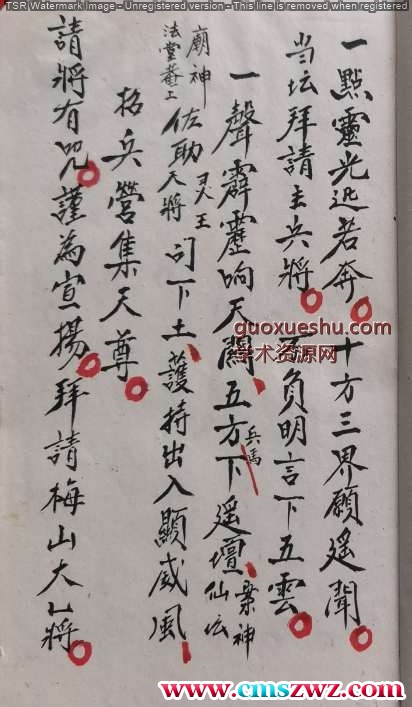 TSR Watermark Image - Unregistered version - This line is removed when registered
一點灵光迅若奔 十方三界願遙聞
当坛拜請主兵將 不負明言下五雲
一聲霹靂响天關 五方兵馬下遥壇 案神仙坛
廟神法堂菴上佐助天將 天王 下土護持出入顯威風
招兵營集天尊
請將有咒謹為宣揚拜請梅山大將
guoxueshu.com
学术资源网
www.cmszwz.com